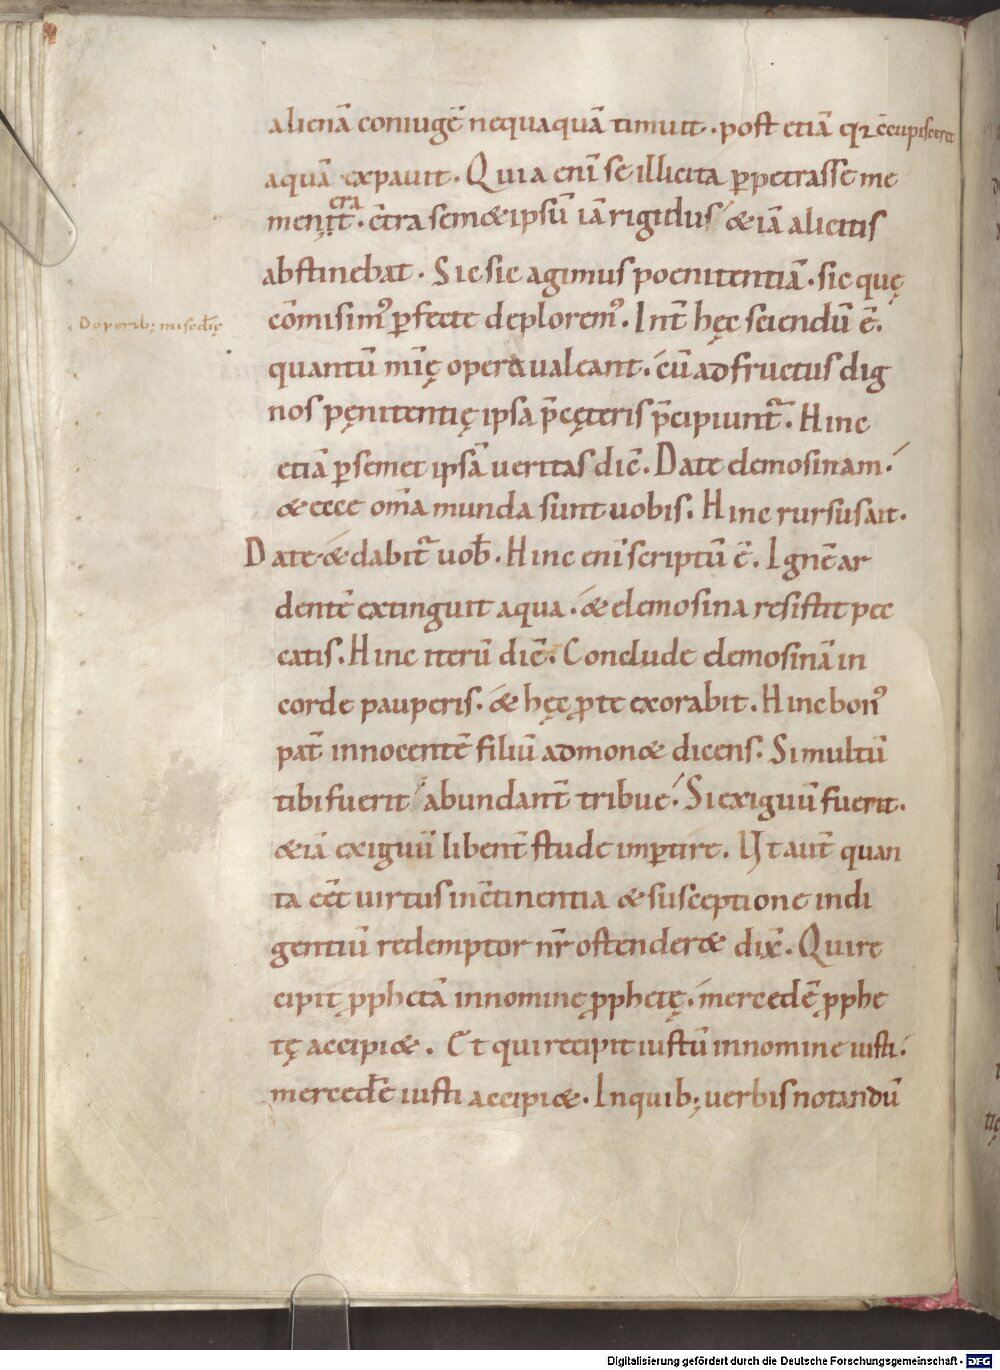 alienā coniugē nequaquā timuit. post etiā qr̄ ccupisceret
aquā expauit. Quia enī se illicita ꝑpetrasse me
mer̄it era. c̄tra sem&ipsū iā rigidus &iā a licitis
abstinebat. Sic sic agimus poenitentiā. sic quę
cōmisim᷒ ꝑfecte deplorem᷒. Int̄ hęc sciendū ē.
D operib; misc̄dię
quantū mīę opera ualeant. cū ad fructus dig
nos pęnitentię ipsa p̄cęteris p̄cipiunt᷑. Hinc
etiā ꝑsemet ipsā ueritas dic̄. Date elemosinam.
& ecce om̄a munda sunt uobis. Hinc rursus ait.
Date & dabit᷑ uob̄. Hinc enī scriptū ē. Ignē ar
dentē extinguit aqua. & elemosina resistit pec
catis. Hinc iterū dic̄. Conclude elemosinā in
corde pauperis. & hęc ꝓ te exorabit. Hinc bon᷒
pat̄ innocentē filiū admon& dicens. Si multū
tibi fuerit abundant̄ tribue. Si exiguū fuerit.
&iā exiguū libent̄ stude imꝑtire. Ut aut̄ quan
ta eēt uirtus in c̄tinentia & susceptione indi
gentiū redemptor nr̄ ostender& dix̄. Qui re
cipit ꝓphetā in nomine ꝓphetę. mercedē ꝓphe
tę accipi&. Et qui recipit iustū in nomine iusti.
mercedē iusti accipi&. In quib; uerbis notandū
Digitalisierung gefördert durch die Deutsche Forschungsgemeinschaft - DFG